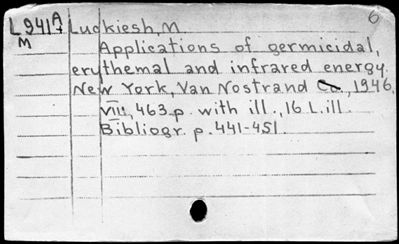 L 941 A Luckiesh, M. 6
M
Applications of germicidal,
erythemal and infrared energy.
New York, Van Nostrand Co., 1946.
VIII, 463 p. with ill., 16 L. ill.
Bibliogr. p. 441-451.